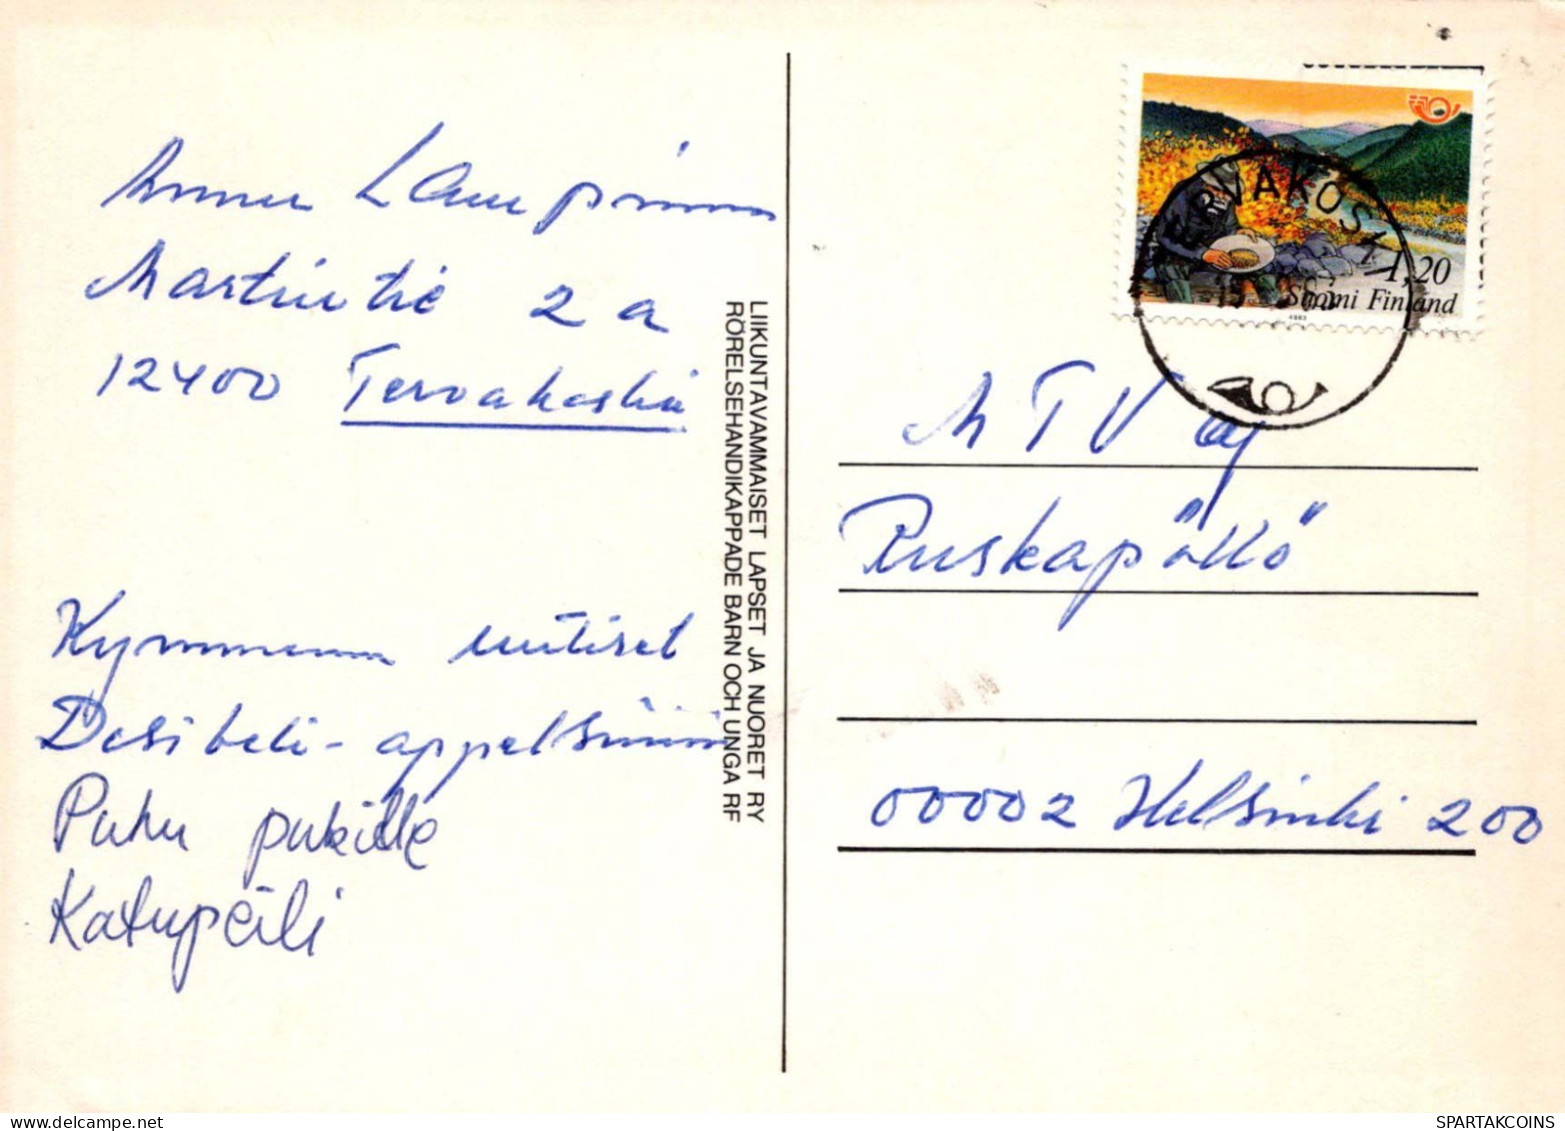 Lampinen
Martintie 2 a
12400 Tervakoski
Kymmenen uutiset
Desibeli-appelsiini
Puhu pukille
Katupeili
LIIKUNTAVAMMAISET LAPSET JA NUORET RY
RÖRELSEHANDIKAPPADE BARN OCH UNGA RF
1,20
Suomi Finland
1983
MTV oy
Ruskapöllö
00002 Helsinki 200
SPARTAKCOINS
delcampe.net